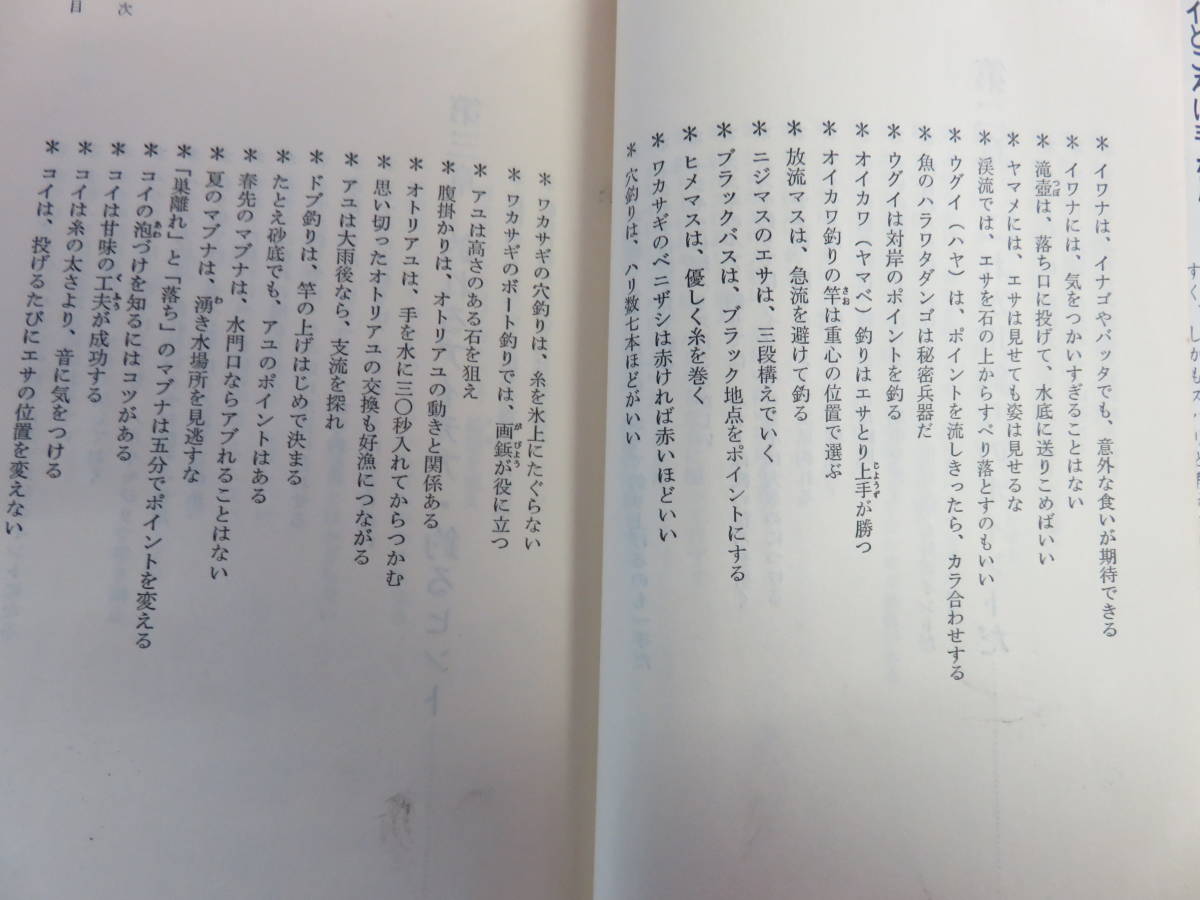 ＊イワナは、イナゴやバッタでも、意外な食いが期待できる
＊イワナには、気をつかいすぎることはない
＊滝壺は、落ち口に投げて、水底に送りこめばいい
＊ヤマメには、エサは見せても姿は見せるな
＊渓流では、エサを石の上からすべり落とすのもいい
＊ウグイ（ハヤ）は、ポイントを流しきったら、カラ合わせする
＊魚のハラワタダンゴは秘密兵器だ
＊ウグイは対岸のポイントを釣る
＊オイカワ（ヤマベ）釣りはエサとり上手が勝つ
＊オイカワ釣りの竿は重心の位置で選ぶ
＊放流マスは、急流を避けて釣る
＊ニジマスのエサは、三段構えでいく
＊ブラックバスは、ブラック地点をポイントにする
＊ヒメマスは、優しく糸を巻く
＊ワカサギのベニザシは赤ければ赤いほどいい
＊穴釣りは、ハリ数七本ほどがいい
＊ワカサギの穴釣りは、糸を氷上にたぐらない
＊ワカサギのボート釣りでは、画鋲が役に立つ
＊アユは高さのある石を狙え
＊腹掛かりは、オトリアユの動きと関係ある
＊オトリアユは、手を水に三〇秒入れてからつかむ
＊思い切ったオトリアユの交換も好漁につながる
＊アユは大雨後なら、支流を探れ
＊ドブ釣りは、竿の上げはじめで決まる
＊たとえ砂底でも、アユのポイントはある
＊春先のマブナは、水門口ならアブれることはない
＊夏のマブナは、湧き水場所を見逃すな
＊「巣離れ」と「落ち」のマブナは五分でポイントを変える
＊コイの泡づけを知るにはコツがある
＊コイは甘味の工夫が成功する
＊コイは糸の太さより、音に気をつける
＊コイは、投げるたびにエサの位置を変えない
目次